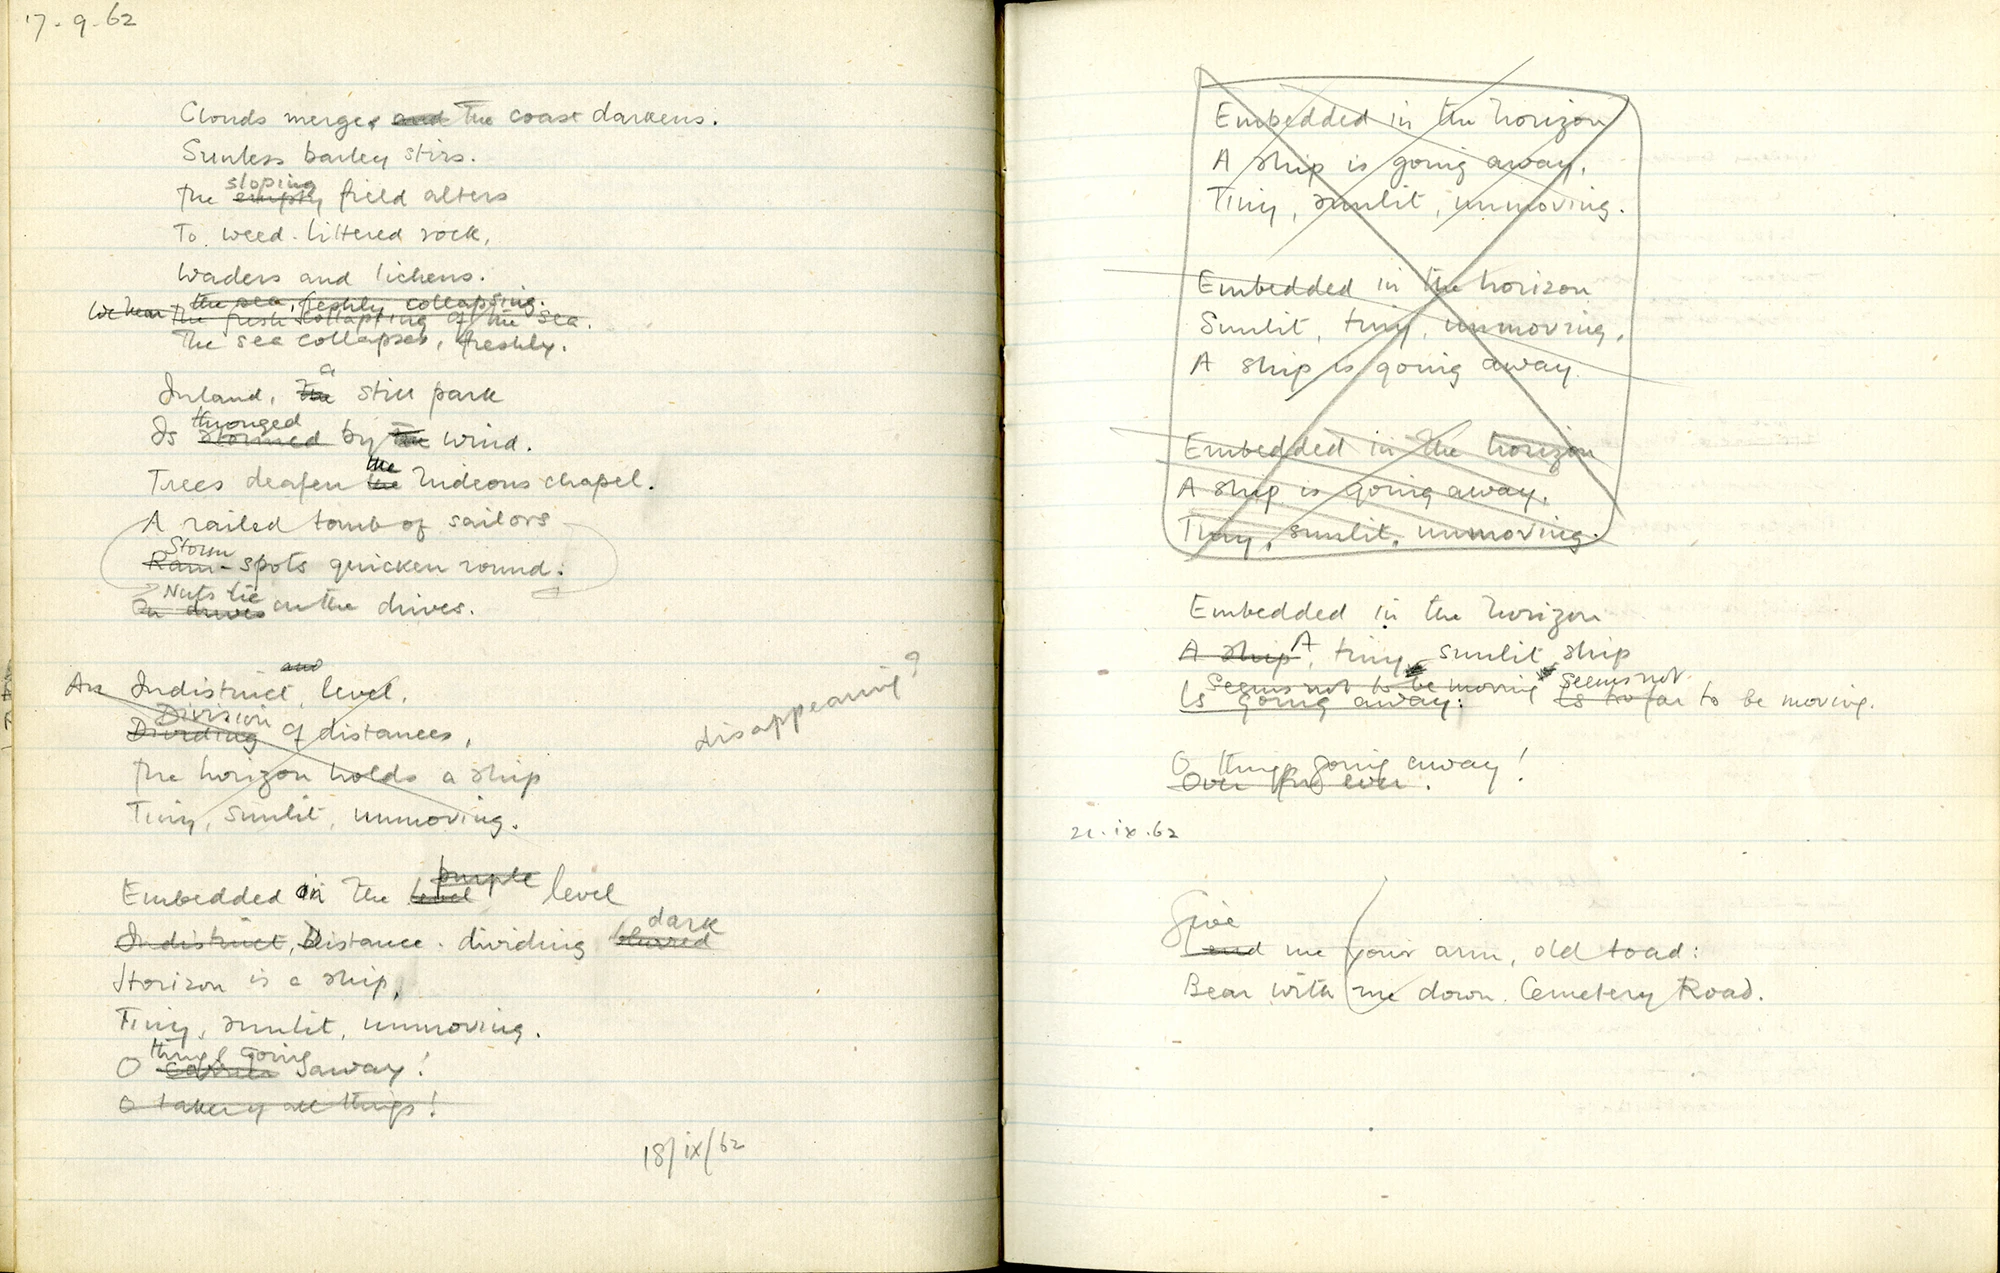 17.9.62
Clouds merge, and The coast darkens.
Sunless barley stirs.
sloping
The empty field alters
To weed-littered rock,
Waders and lichens.
the sea, freshly collapsing.
We hear The fresh collapsing of the sea.
The sea collapses, freshly.
a
Inland, the still park
thronged
Is stormed by the wind.
the
Trees deafen the hideous chapel.
A railed tomb of sailors
Storm
Rain-spots quicken round:
Nuts lie
On drives on the drives.
and
An Indistinct, level,
Division
Dividing of distances,
disappearing?
The horizon holds a ship
Tiny, sunlit, unmoving.
purple
Embedded in the level level
dark
Indistinct, Distance. dividing blurred
Horizon is a ship,
Tiny, sunlit, unmoving.
things going
O away!
O taking all things!
18/ix/62
Embedded in the horizon
A ship is going away,
Tiny, sunlit, unmoving.
Embedded in the horizon
Sunlit, tiny, unmoving,
A ship is going away.
Embedded in the horizon
A ship is going away,
Tiny, sunlit, unmoving.
Embedded in the horizon
A ship A, tiny, sunlit ship
Seems not to be moving Seems not
Is going away: Is too far to be moving.
O things going away!
Over for ever.
21.ix.62
Give
end me your arm, old toad:
Bear with me down Cemetery Road.